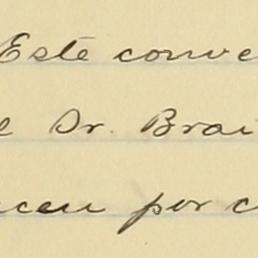 Este conve
l Dr. Brai
cen por c